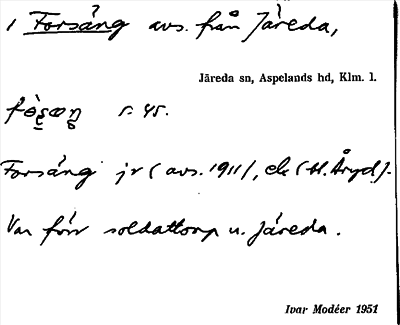 1 Forsång avs. från Järeda,
Järeda sn, Aspelands hd, Klm. l.
s. 45.
Forsång jr (avs. 1911), ek (bl. Åryd).
Var förr soldattorp u. Järeda.
Ivar Modéer 1951